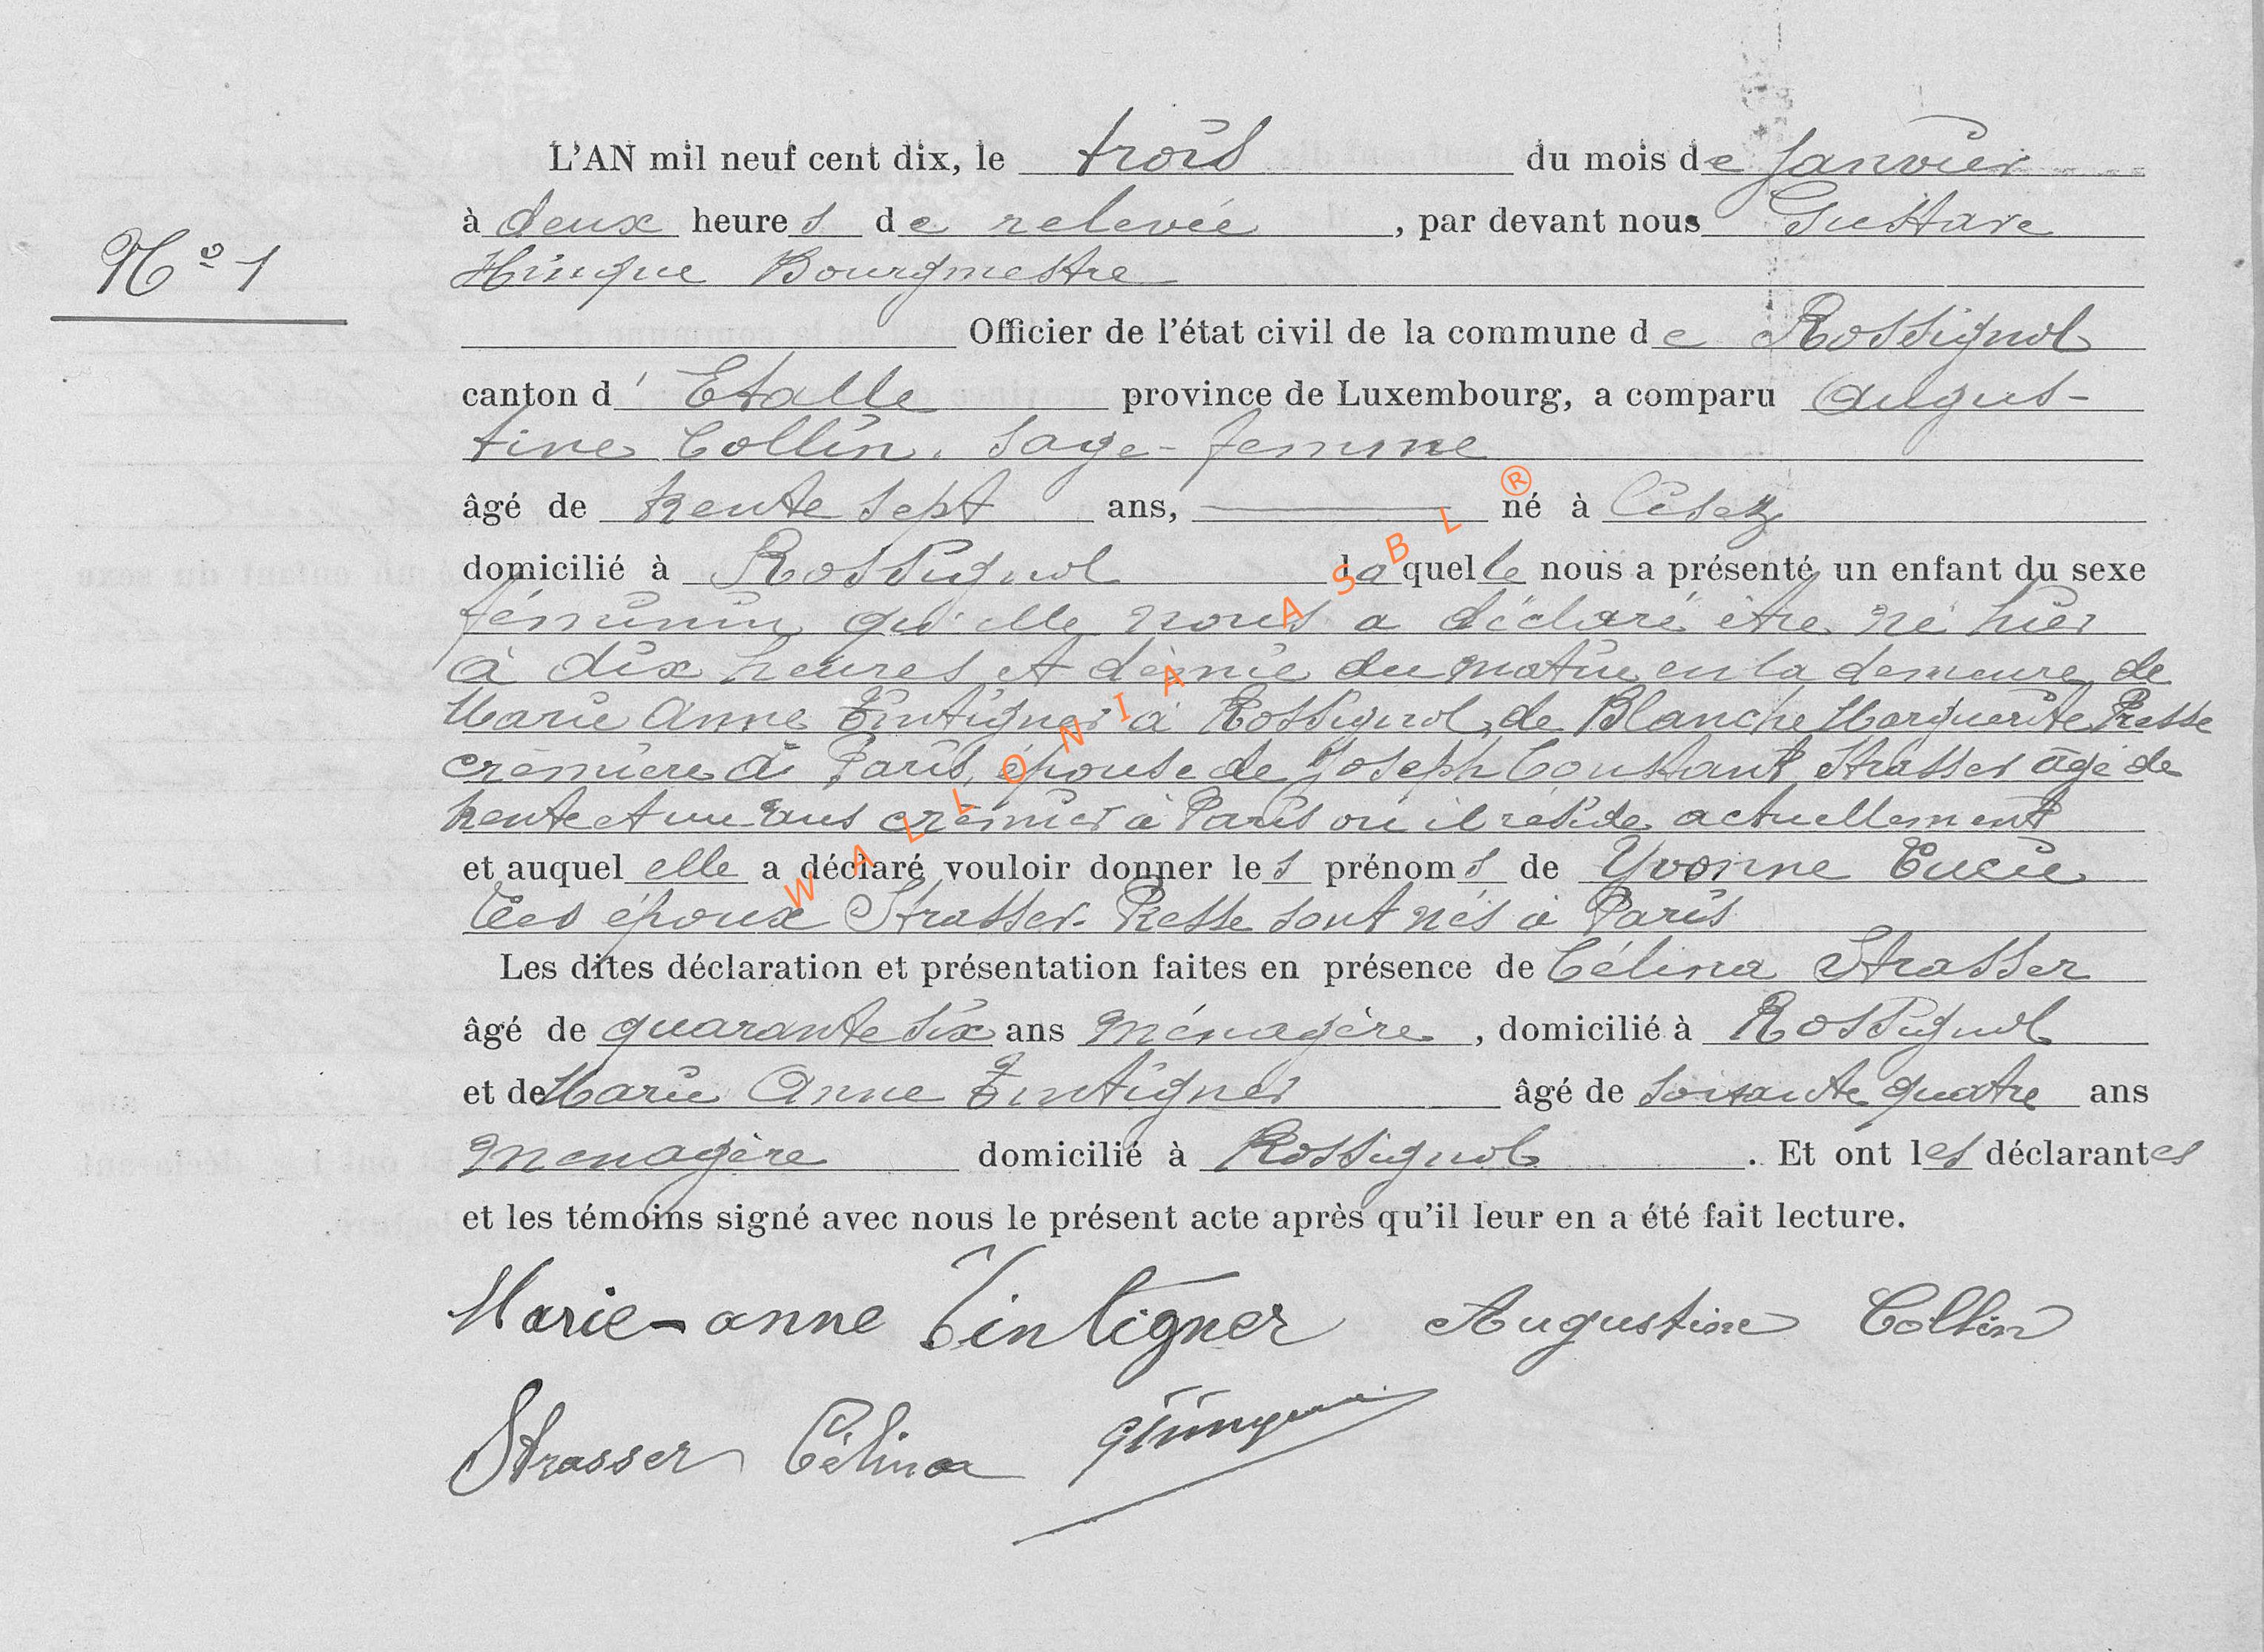 L'AN mil neuf cent dix, le trois du mois de Janvier
N° 1
à deux heures de relevée, par devant nous Gustave
Hinque Bourgmestre
Officier de l'état civil de la commune de Rossignol
canton d'Etalle province de Luxembourg, a comparu Augus-
tine Collin, sage-femme
âgé de trente sept ans, né à
domicilié à Rossignol laquelle nous a présenté un enfant du sexe
féminin qu'elle nous a déclaré être né hier
à dix heures et demie du matin en la demeure de
Marie Anne Tintigner à Rossignol, de Blanche Marguerite Presse
crémière à Paris, épouse de Joseph Constant Strasser âgé de
trente et un ans crémier à Paris où il réside actuellement
et auquel elle a déclaré vouloir donner les prénoms de Yvonne Lucie
Les époux Strasser-Presse sont nés à Paris
Les dites déclaration et présentation faites en présence de Célina Strasser
âgé de quarante six ans ménagère, domicilié à Rossignol
et de Marie Anne Tintigner âgé de soixante quatre ans
ménagère domicilié à Rossignol. Et ont les déclarantes
et les témoins signé avec nous le présent acte après qu'il leur en a été fait lecture.
Marie-anne Tintigner Augustine Collin
Strasser Célina GHinque
WALLONIA ASBL ®